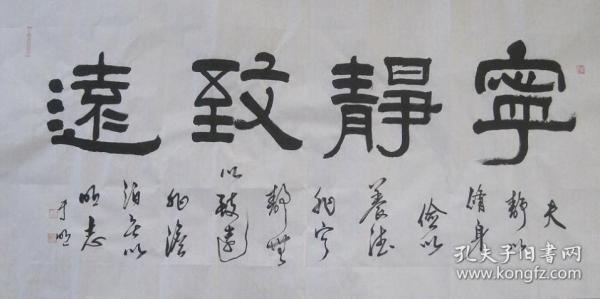 寧靜致遠
夫
靜以
脩身
儉以
養德
非宁
靜無
以致遠
非澹
泊無以
明志
孔夫子旧书网
www.kongfz.com